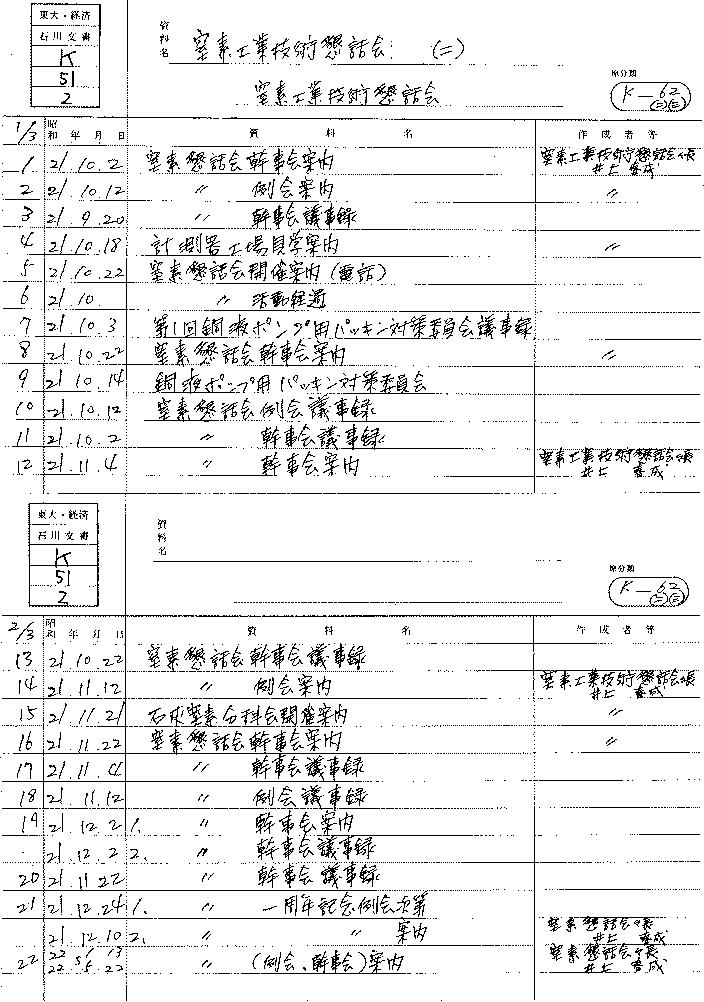 東大・経済
石川文書
K
51
2
資料名 窒素工業技術懇話会 (二)
窒素工業技術懇話会
原分類
K-62
(二)(三)
1/3 昭和 年 月 日 資 料 名 作成者等
1 21.10.2 窒素懇話会幹事会案内 窒素工業技術懇話会々長 井上 春成
2 21.10.12 〃 例会案内 〃
3 21.9.20 〃 幹事会議事録
4 21.10.18 計測器工場見学案内 〃
5 21.10.22 窒素懇話会開催案内(電話)
6 21.10. 〃 活動経過
7 21.10.3 第1回銅液ポンプ用パッキン対策委員会議事録
8 21.10.22 窒素懇話会幹事会案内 〃
9 21.10.14 銅液ポンプ用パッキン対策委員会
10 21.10.12 窒素懇話会例会議事録
11 21.10.2 〃 幹事会議事録
12 21.11.4 〃 幹事会案内 窒素工業技術懇話会々長 井上 春成
東大・経済
石川文書
K
51
2
資料名
原分類
K-62
(二)(三)
2/3 昭和 年 月 日 資 料 名 作成者等
13 21.10.22 窒素懇話会幹事会議事録
14 21.11.12 〃 例会案内 窒素工業技術懇話会々長 井上 春成
15 21.11.21 石灰窒素分科会開催案内 〃
16 21.11.22 窒素懇話会幹事会案内 〃
17 21.11.4 〃 幹事会議事録
18 21.11.12 〃 例会議事録
19 21.12.2 1. 〃 幹事会案内
. 21.12.2 2. 〃 幹事会議事録
20 21.11.22 〃 幹事会議事録
21 21.12.24 1. 〃 一周年記念例会次第
21.12.10 2. 〃 〃 案内 窒素懇話会々長 井上 春成
22 22 5 13 22 5 22 〃 (例会、幹事会)案内 窒素懇話会々長 井上 春成